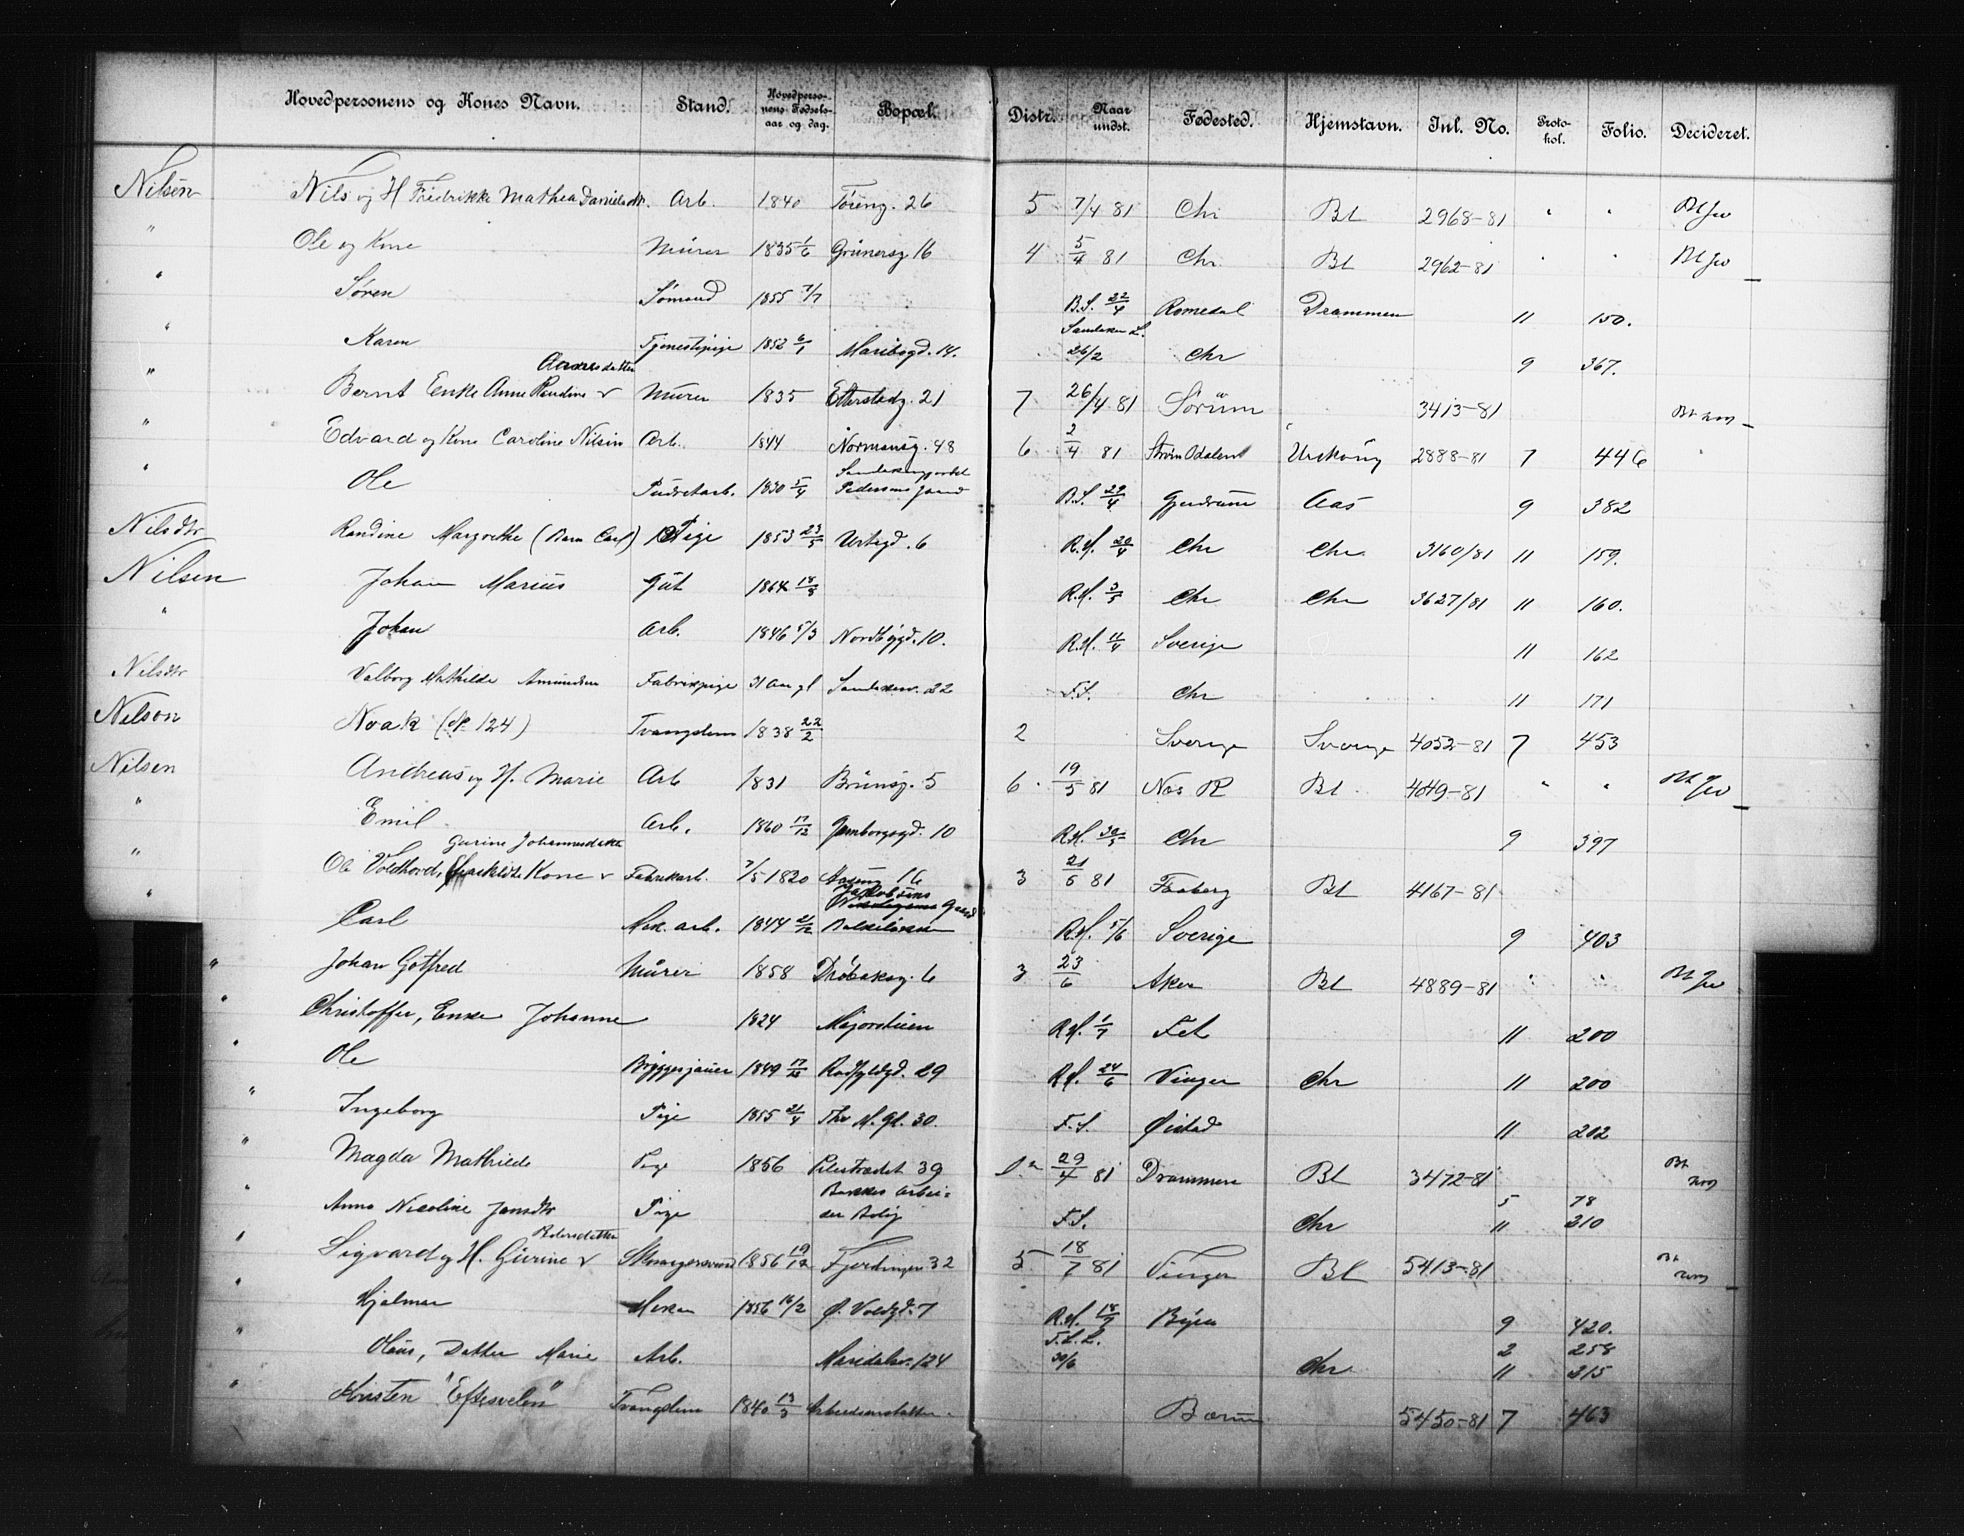 Hovedpersonens og Kones Navn. Stand. Hovedperso-nens Fødsels-aar og dag. Bopæl. Distr. Naar undst. Fødested. Hjemstavn. Inl. No. Proto-kol. Folio. Decideret.
Nilsen Nils og H Fredrikke Mathea Danielsdtr. Arb. 1840 Tøieng. 26 5 7/4 81 Chr Bt 2968-81 " "
" Ole og Kone Murer 1835 1/6 Grünersg 16 4 5/4 81 Chr Bt 2962-81 " "
" Søren Sømand 1855 7/7 B.S. 22/4 Romedal Drammen 11 150.
" Karen Tjenestepige 1852 6/1 Maribogd. 14. Sandaker L. 26/2 Chr 9 367.
Andersdatter
" Bernt Enke Anne Randine v Murer 1835 Etterstadg. 21 7 26/4 81 Sørum 3413-81
" Edvard og Kone Caroline Nilsen Arb. 1844 Normansg. 48 6 2/4 81 Strøm Odalen Urskoug 2888-81 7 446
" Ole Pudretarb. 1830 5/4 Pedersens Gaard B.S. 29/4 Gjerdrum Aas 9 382
Nilsdtr Randine Margrethe (Barn Carl) Pige 1853 23/5 Urtegd. 6 R.H. 20/4 Chr Chr 3160/81 11 159.
Nilsen Johan Marius Gut 1864 18/8 R.H. 3/5 Chr Chr 3627/81 11 160.
" Johan Arb. 1846 5/3 Nordbygd. 10. R.H. 11/4 Sverige 11 162
Nilsdtr Valborg Mathilde Amundsen Fabrikpige 31 Aar gl Sandakerv. 22 F.S. Chr 11 171
Nilson Noak (N 124) Tvangslem 1838 22/2 2 Sverige Sverige 4052-81 7 453
Nilsen Andreas og H. Marie Arb 1831 Brunsg. 5 6. 19/5 81 Nes R Bt 4049-81 " "
" Emil Arb. 1860 17/12 10 R.H. 30/5 Chr 9 397
Gurine Johannesdatter
" Ole Kone v Fabrikarb. 7/5 1820 Aaseng 16 3 21/5 81 Faaberg Bt 4167-81
Jakobsens Gaard
" Carl Mek. arb. 1844 21/12 R.H. 5/6 Sverige 9 403
" Johan Gotfred Murer 1858 Drøbaksg. 6 3 23/6 Aker Bt 4889-81 " "
" Christoffer, Enke Johanne 1824 Majorstuen R.H. 1/7 Fet 11 200
" Ole Bryggesjauer 1849 Radfyldgd. 29 R.H. 24/6 Vinger Chr 11 200
" Ingeborg Pige 1855 21/4 Thr M. Gl. 30. F.S. Øistad 11 202
" Magda Mathilde Pige 1856 Pilestrædet 39 29/4 81 Drammen Bt 3472-81
" Anna Nicoline Jansdtr Pige Bakkes Arbei-der Bolig F.S. Chr 5 78
11 210
Pedersdatter
" Sigvard og H. Gurine v Skomagersvend 1856 19/12 Fjerdingen 32 5 18/7 81 Vinger Bt 5413-81
" Hjalmar 1856 16/2 Ø. Voldgd. 7 R.H. 18/7 9 420.
" Olaus, Datter Marie Arb. Maridalsv. 124 F.L.L. 30/6 Chr 2 258
11 215
" Kristen "Eftesvelen" Tvangslem 1840 13/3 Arbeidsanstalten. Bærum 5450-81 7 463